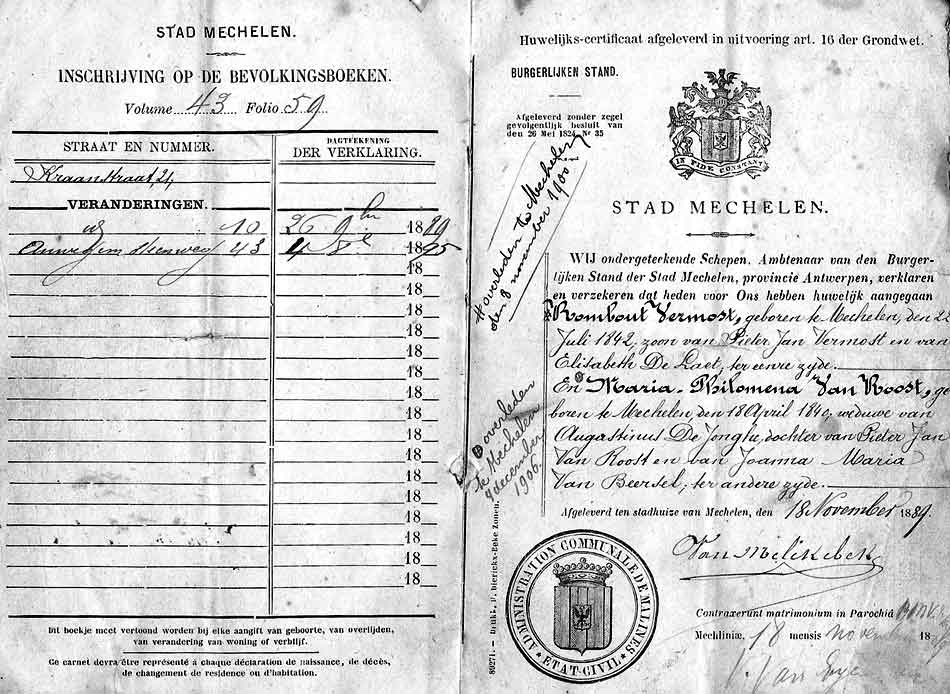 STAD MECHELEN.
INSCHRIJVING OP DE BEVOLKINGSBOEKEN.
Volume 43 Folio 59
STRAAT EN NUMMER.
DAGTEEKENING
DER VERKLARING.
Kraanstraat, 21,
VERANDERINGEN.
id 10 26 9br 1889
steenweg 43 4 1895
18
18
18
18
18
18
18
18
18
18
18
18
18
18
18
18
Dit boekje moet vertoond worden bij elke aangift van geboorte, van overlijden,
van verandering van woning of verblijf.
Ce carnet devra être représenté à chaque déclaration de naissance, de décès,
de changement de residence ou d'habitation.
Huwelijks-certificaat afgeleverd in uitvoering art. 16 der Grondwet.
BURGERLIJKEN STAND.
Afgeleverd zonder zegel
gevolgentlijk besluit van
den 26 Mei 1824 Nº 35
IN FIDE CONSTANS
STAD MECHELEN.
WIJ ondergeteekende Schepen, Ambtenaar van den Burger-
lijken Stand der Stad Mechelen, provincie Antwerpen, verklaren
en verzekeren dat heden voor Ons hebben huwelijk aangegaan
Rombout Vermost, geboren te Mechelen, den 22
Juli 1842, zoon van Pieter Jan Vermost en van
Elisabeth De Laet, ter eenre zyde.
En Maria-Philomena Van Roost, ge-
boren te Mechelen, den 18 April 1840, weduwe van
Augustinus De Jonghe, dochter van Pieter Jan
Van Roost en van Joanna Maria
Van Beersel, ter andere zyde.
Afgeleverd ten stadhuize van Mechelen, den 18 November 1889.
Van Melckebeke
Contraxerunt matrimonium in Parochiâ
Mechliniæ, 18 mensis novem 18
overleden te Mechelen
den 8 november 1900
overleden
te Mechelen
9 december
1906.
89271. - Drukk. P. Dierickx-Beke Zonen.
ADMINISTRATION COMMUNALE DE MALINES
ETAT-CIVIL